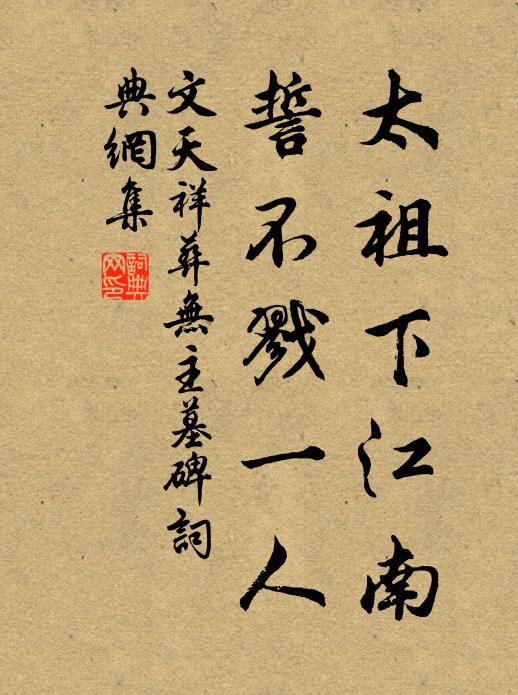 太祖下江南
誓不戮一人
文天祥葬無主墓碑詞
典網集
詞典網印